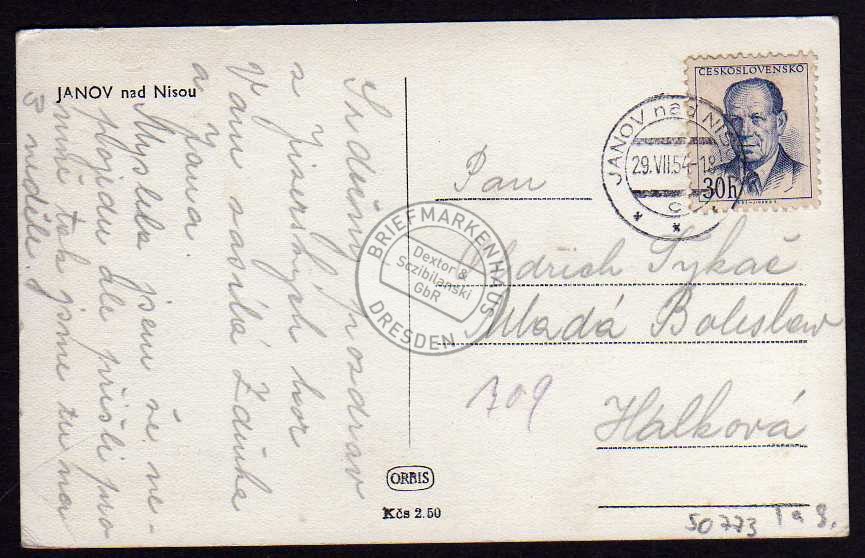 JANOV nad Nisou
Srdečný pozdrav
z Jizerských hor
Vám zasílá Zdeňka
a Jana
Myslela jsem že ne-
pojedu ale přišli pro
mně tak jsme tu na
3 neděle.
ČESKOSLOVENSKO
30h
JANOV nad NISOU
29.VII.54-18
C
Pan
Oldřich Tykač
Mladá Boleslav
709
Hálková
BRIEFMARKENHAUS
Dextor &
Sczibilanski
GbR
DRESDEN
ORBIS
Kčs 2.50
50773